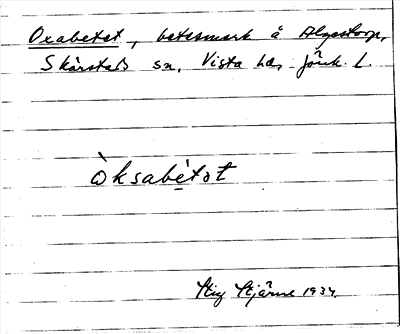 Oxabetet, betesmark å Algustorp,
Skärstads sn, Vista hd, Jönk. l.
òksabètət
Stig Stjärne 1934.